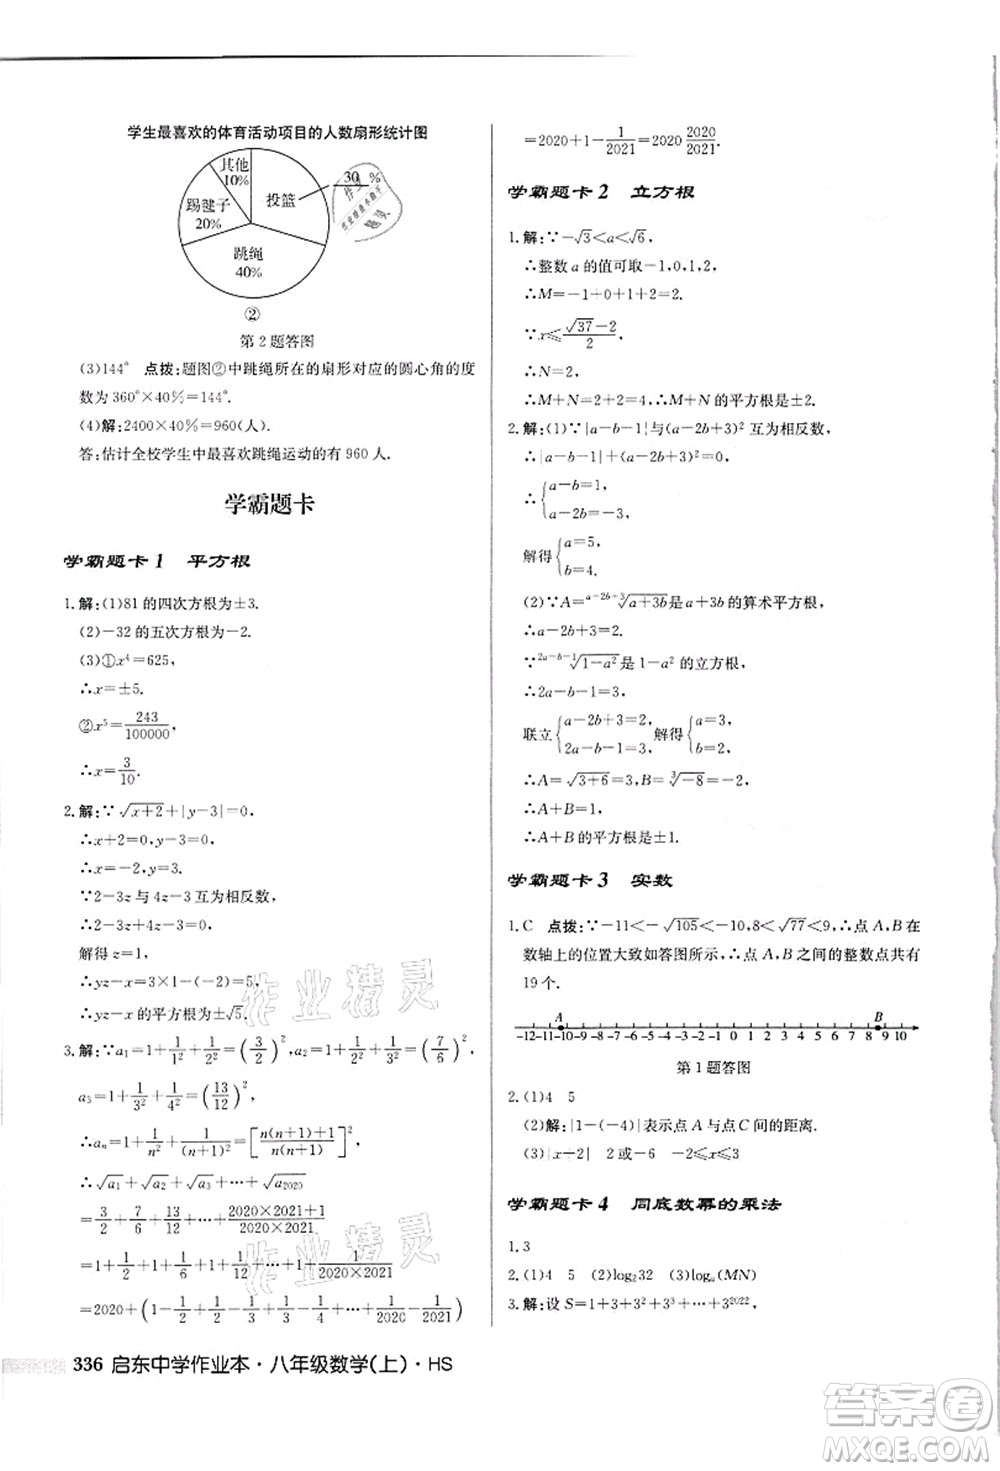 学生最喜欢的体育活动项目的人数扇形统计图
其他
10%
30 %
投篮
踢毽子
20%
跳绳
40%
②
第2题答图
(3)144° 点拨:题图②中跳绳所在的扇形对应的圆心角的度
数为360°×40%=144°.
(4)解:2400×40%=960(人).
答:估计全校学生中最喜欢跳绳运动的有960人.
学霸题卡
学霸题卡1 平方根
1.解:(1)81的四次方根为±3.
(2)-32的五次方根为-2.
(3)①x⁴=625,
∴x=±5.
②x⁵=243/100000,
∴x=3/10.
2.解:∵√(x+2)+|y-3|=0,
∴x+2=0,y-3=0,
∴x=-2,y=3.
∵2-3z与4z-3互为相反数,
∴2-3z+4z-3=0,
解得z=1,
∴yz-x=3×1-(-2)=5,
∴yz-x的平方根为±√5.
3.解:∵a₁=1+1/1²+1/2²=(3/2)²,a₂=1+1/2²+1/3²=(7/6)²,
a₃=1+1/3²+1/4²=(13/12)²,
∴aₙ=1+1/n²+1/(n+1)²=[(n(n+1)+1)/(n(n+1))]²,
∴√a₁+√a₂+√a₃+…+√a₂₀₂₀
=3/2+7/6+13/12+…+(2020×2021+1)/(2020×2021)
=1+1/2+1+1/6+1+1/12+…+1+1/(2020×2021)
=2020+(1-1/2+1/2-1/3+1/3-1/4+…+1/2020-1/2021)
=2020+1-1/2021=2020 2020/2021.
学霸题卡2 立方根
1.解:∵-√3<a<√6,
∴整数a的值可取-1,0,1,2,
∴M=-1+0+1+2=2.
∵x≤(√37-2)/2,
∴N=2,
∴M+N=2+2=4,∴M+N的平方根是±2.
2.解:(1)∵|a-b-1|与(a-2b+3)²互为相反数,
∴|a-b-1|+(a-2b+3)²=0,
∴{a-b=1, a-2b=-3,
解得{a=5, b=4.
(2)∵A=ᵃ⁻²ᵇ⁺³√(a+3b)是a+3b的算术平方根,
∴a-2b+3=2.
∵²ᵃ⁻ᵇ⁻¹√(1-a²)是1-a²的立方根,
∴2a-b-1=3.
联立{a-2b+3=2, 2a-b-1=3, 解得{a=3, b=2,
∴A=√(3+6)=3,B=³√-8=-2,
∴A+B=1,
∴A+B的平方根是±1.
学霸题卡3 实数
1.C 点拨:∵-11<-√105<-10,8<√77<9,∴点A,B在
数轴上的位置大致如答图所示,∴点A,B之间的整数点共有
19个.
A B
-12-11-10-9-8-7-6-5-4-3-2-1 0 1 2 3 4 5 6 7 8 9 10
第1题答图
2.(1)4 5
(2)解:|1-(-4)|表示点A与点C间的距离.
(3)|x-2| 2或-6 -2≤x≤3
学霸题卡4 同底数幂的乘法
1.3
2.(1)4 5 (2)log₂32 (3)logₐ(MN)
3.解:设S=1+3+3²+3³+3⁴+…+3²⁰²²,
336 启东中学作业本·八年级数学(上)·HS
作业精灵
作业精灵
答案圈
MXQE.COM